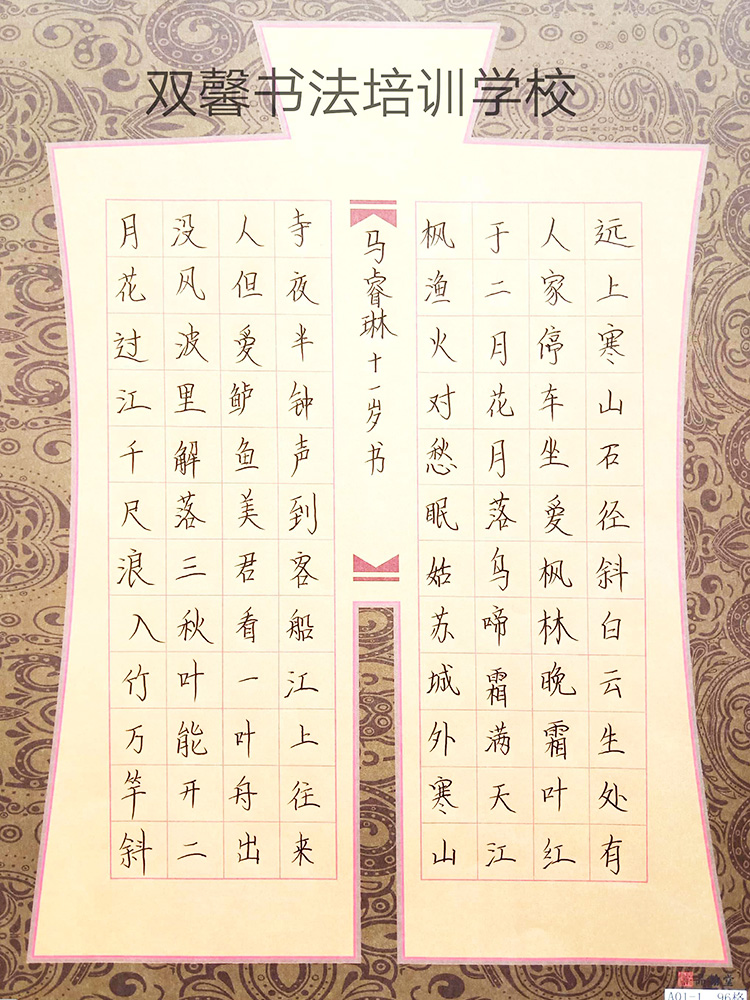 双馨书法培训学校
远上寒山石径斜白云生处有
人家停车坐爱枫林晚霜叶红
于二月花月落乌啼霜满天江
枫渔火对愁眠姑苏城外寒山
马睿琳十一岁书
寺夜半钟声到客船江上往来
人但爱鲈鱼美君看一叶舟出
没风波里解落三秋叶能开二
月花过江千尺浪入竹万竿斜
A01-1 96格